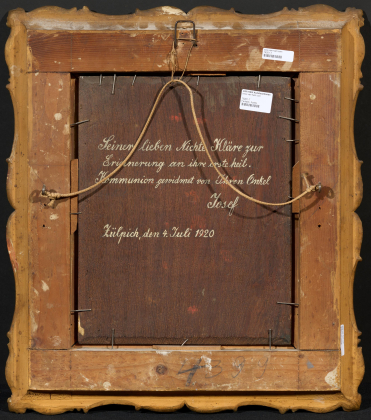 Seiner lieben Nichte Kläre zur
Erinnerung an ihre erste heil.
Kommunion gewidmet von Ihrem Onkel
Josef
Zülpich, den 4. Juli 1920